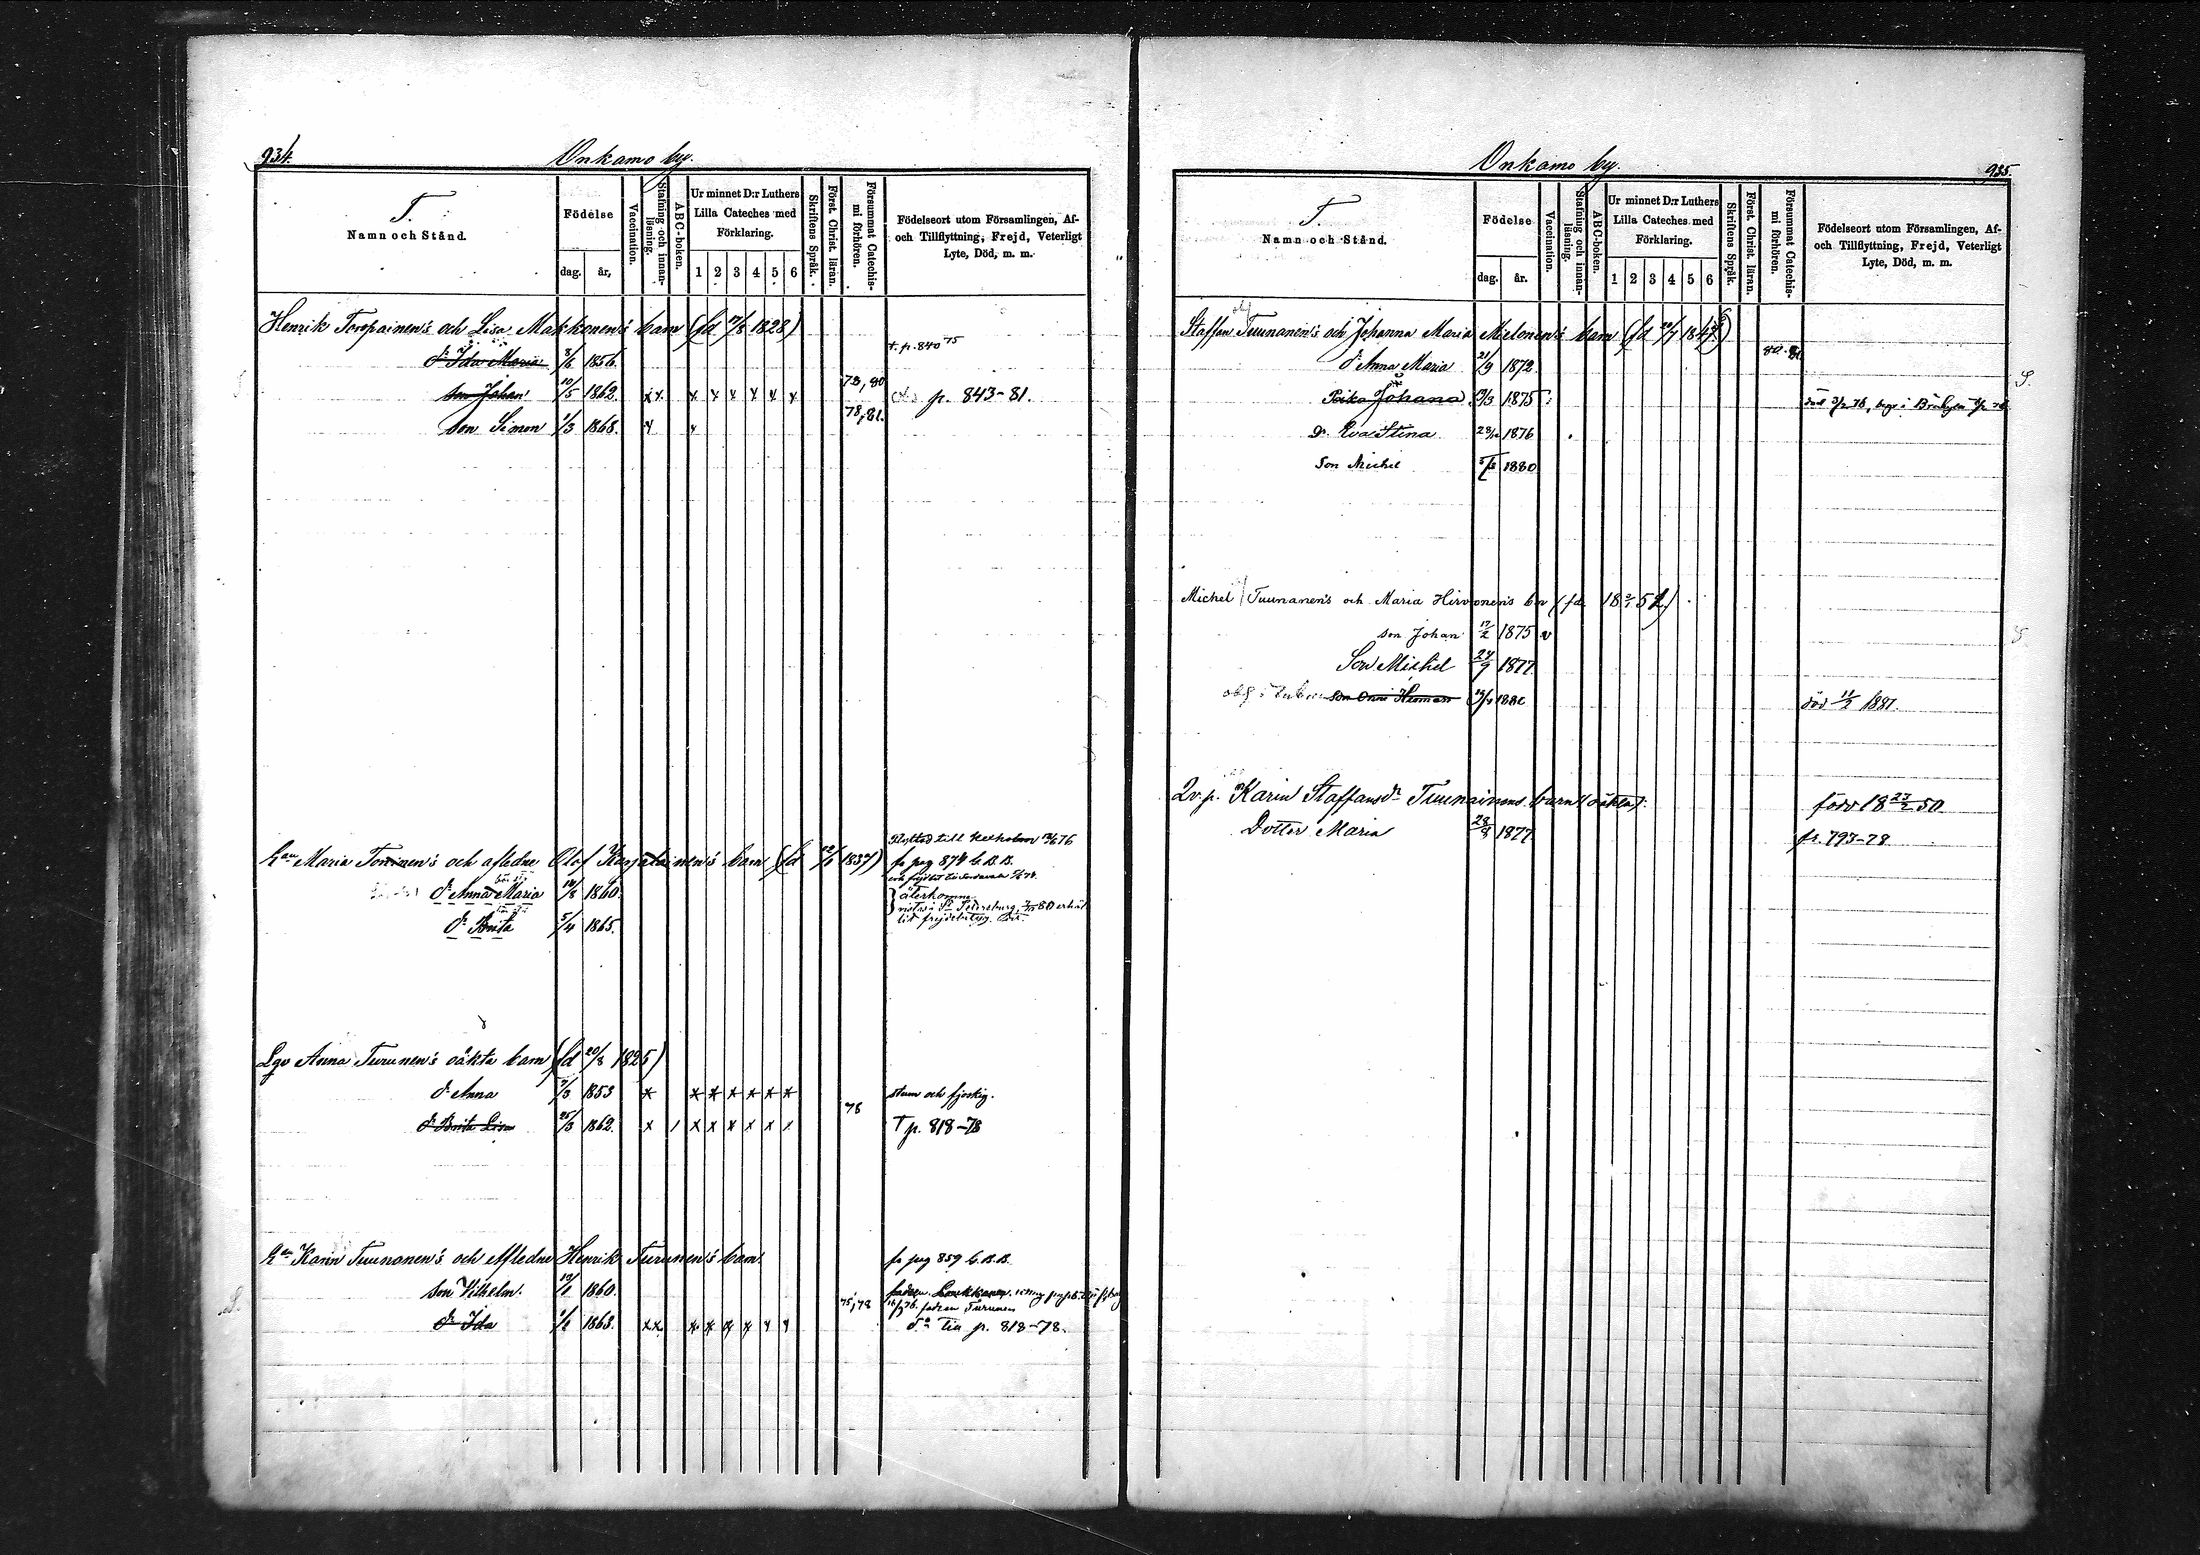 934.
Onkamo by.
T.
Namn och Stånd.
Födelse
dag. år,
Vaccination.
Stafning och innanläsning.
ABC-boken.
Ur minnet D:r Luthers
Lilla Cateches med
Förklaring.
1 2 3 4 5 6
Skriftens Språk.
Först. Christ. läran.
Försummat Catechismi förhören.
Födelseort utom Församlingen, Af-
och Tillflyttning, Frejd, Veterligt
Lyte, Död, m. m.
Henrik Toropainen's och Lisa Makkonen's barn (fd 17/8 1828)
dr Ida Maria 8/6 1856. t. p. 840 75
son Johan 10/5 1862. x x x x x x x x 78, 80 p. 843-81.
son Simon 1/3 1868. x x 78, 81.
Flyttad till Kexholm 76
Maria Toninen's och afledne Olof Karjalainen's barn (fd 1837) fr pag 874 C.B.B.
dr Anna Maria 14/8 1860. återkomna
St Petersburg, 80
dr Brita 5/4 1865.
Anna Turunen's oäkta barn (fd 20/8 1825)
dr Anna 7/3 1853 x x x x x x x stum och fjoskig.
78
dr Brita Lisa 25/3 1862. x / x x x x x x T p. 818-78
Karin Tuunanen's och Afledne Henrik Turunen's barn. fr pag 859 C.B.B.
son Vilhelm. 19/1 1860.
75, 78
fadren Turunen
dr Ida 1/2 1863. x x x x x x x x p. 818-78.
Onkamo by.
935.
T.
Namn och Stånd.
Födelse
dag. år.
Vaccination.
Stafning och innanläsning.
ABC-boken.
Ur minnet D:r Luthers
Lilla Cateches med
Förklaring.
1 2 3 4 5 6
Skriftens Språk.
Först. Christ. läran.
Försummat Catechismi förhören.
Födelseort utom Församlingen, Af-
och Tillflyttning, Frejd, Veterligt
Lyte, Död, m. m.
Staffan Tuunanen's och Johanna Maria Mielonen's barn
80.81
dr Anna Maria 21/9 1872.
Johana 1875
dr Eva Stina 1876
Son Michel 1880
Michel Tuunanen's och Maria Hirvonen's bn (fd. 18 52)
son Johan 17/2 1875 v
Son Michel 24/9 1877.
son 1880 död 11/2 1881.
Karin Staffansdr Tuunainens barn (oäkta): född 18 23/2 50
Dotter Maria 28/8 1877. fr. 797-78